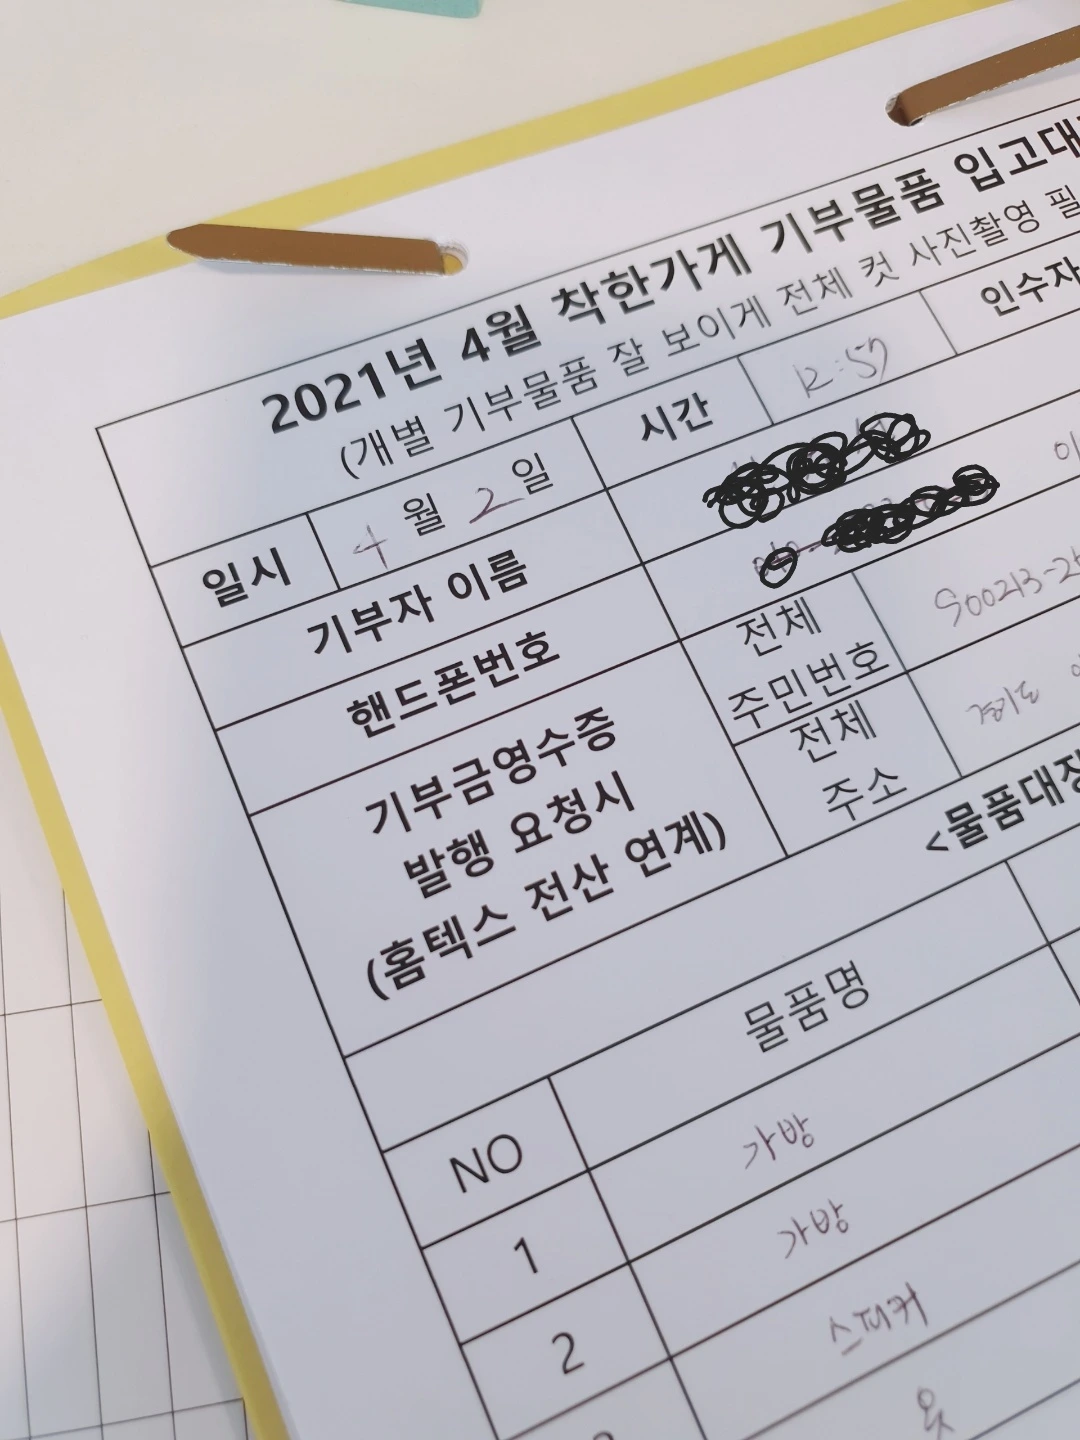 2021년 4월 착한가게 기부물품 입고대
(개별 기부물품 잘 보이게 전체 컷 사진촬영 필
일시 4월 2일 시간 12:57 인수자
기부자 이름
핸드폰번호
기부금영수증
발행 요청시
(홈텍스 전산 연계)
전체
주민번호
900213-2
전체
주소
경기도
<물품대장
NO 물품명
1 가방
2 가방
스피커
옷